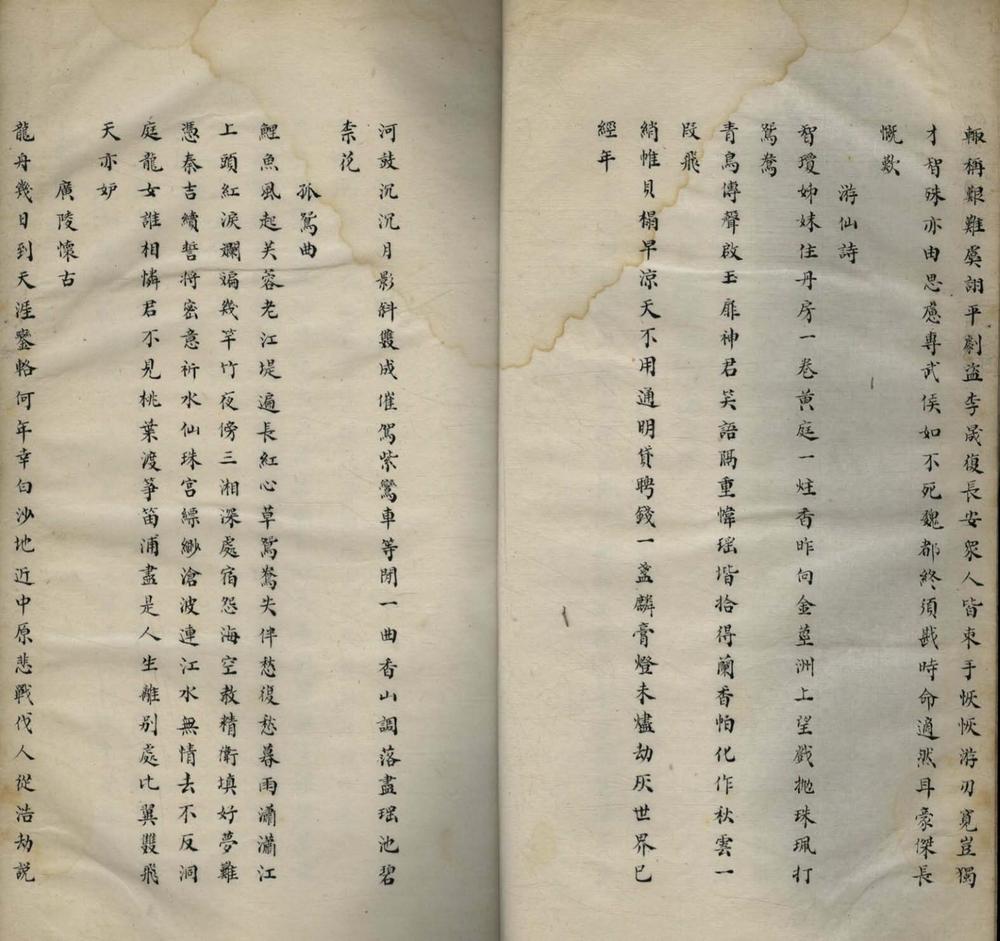 輙稱艱難虞詡平劇盜李晟復長安眾人皆束手恢恢游刃寬豈獨
才智殊亦由思慮專武侯如不死魏都終須戡時命適然耳豪傑長
慨歎
游仙詩
智瓊姊妹住丹房一卷黃庭一炷香昨向金莖洲上望戲拋珠珮打
鴛鴦
青鳥傳聲啟玉扉神君笑語隔重幃瑶堦拾得蘭香帕化作秋雲一
段飛
綃帷貝榻早涼天不用通明貸聘錢一盞麟膏燈未燼劫灰世界已
經年
河鼓沉沉月影斜雙成催駕紫鸞車等閒一曲香山調落盡瑶池碧
柰花
孤鴛曲
鯉魚風起芙蓉老江堤遍長紅心草鴛鴦失伴愁復愁暮雨瀟瀟江
上頭紅淚斕斒幾竿竹夜傍三湘深處宿怨海空教精衛填好夢難
憑秦吉續誓將密意祈水仙珠宮縹緲滄波連江水無情去不反洞
庭龍女誰相憐君不見桃葉渡箏笛浦盡是人生離別處比翼雙飛
天亦妒
廣陵懷古
龍舟幾日到天涯鑾輅何年幸白沙地近中原悲戰伐人從浩劫說